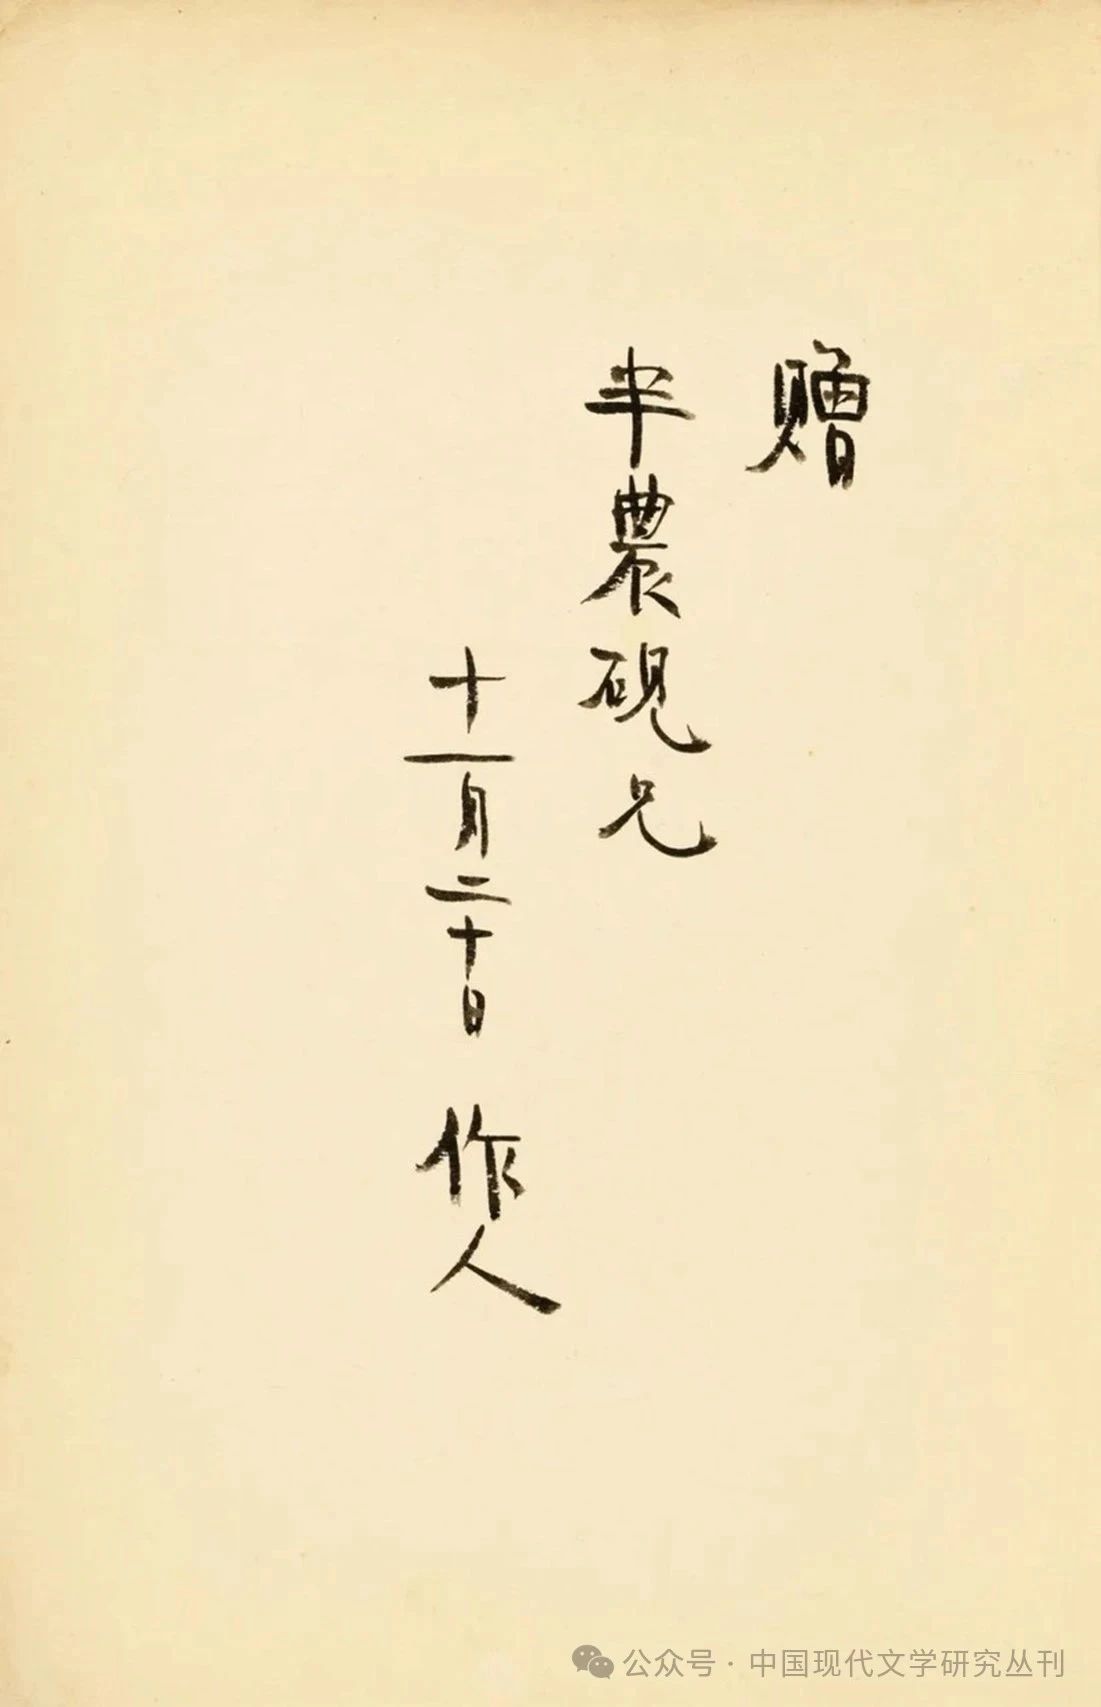 贈
半農硯兄
十一月二十日 作人
公众号 · 中国现代文学研究丛刊